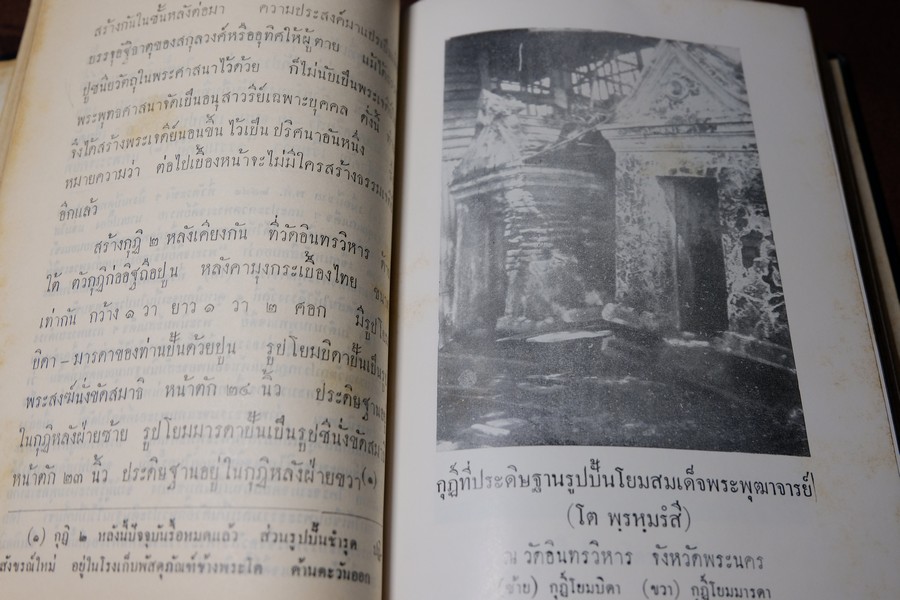 สร้างกันในชั้นหลังต่อมา ความประสงค์มาแปรเป็น
บรรจุอัฐิธาตุของสกุลวงศ์หรืออุทิศให้ผู้ตาย มิได้
ปูชนียวัตถุในพระศาสนาไว้ด้วย ก็ไม่นับเป็นพระเจดีย์
พระพุทธศาสนาจัดเป็นอนุสาวรีย์เฉพาะบุคคล ดังนี้
จึงได้สร้างพระเจดีย์นอนขึ้นไว้เป็น ปริศนาอันหนึ่ง
หมายความว่า ต่อไปเบื้องหน้าจะไม่มีใครสร้างธรรมเจดีย์
อีกแล้ว
สร้างกุฏิ ๒ หลังเคียงกัน ที่วัดอินทรวิหาร ด้าน
ใต้ ตัวกุฏิก่ออิฐถือปูน หลังคามุงกระเบื้องไทย ขนาด
เท่ากัน กว้าง ๑ วา ยาว ๑ วา ๒ ศอก มีรูปโยม
บิดา – มารดาของท่านปั้นด้วยปูน รูปโยมบิดาปั้นเป็นรูป
พระสงฆ์นั่งขัดสมาธิ หน้าตัก ๒๔ นิ้ว ประดิษฐาน
ในกุฏิหลังฝ่ายซ้าย รูปโยมมารดาปั้นเป็นรูปชีนั่งขัดสมาธิ
หน้าตัก ๒๓ นิ้ว ประดิษฐานอยู่ในกุฏิหลังฝ่ายขวา(๑)
(๑) กุฏิ ๒ หลังนี้ปัจจุบันรื้อหมดแล้ว ส่วนรูปปั้นชำรุด
สังขรณ์ใหม่ อยู่ในโรงเก็บพัสดุภัณฑ์ข้างพระโต ด้านตะวันออก
กุฏิที่ประดิษฐานรูปปั้นโยมสมเด็จพระพุฒาจารย์
(โต พฺรหฺมรํสี)
ณ วัดอินทรวิหาร จังหวัดพระนคร
(ซ้าย) กุฏิโยมบิดา (ขวา) กุฏิโยมมารดา